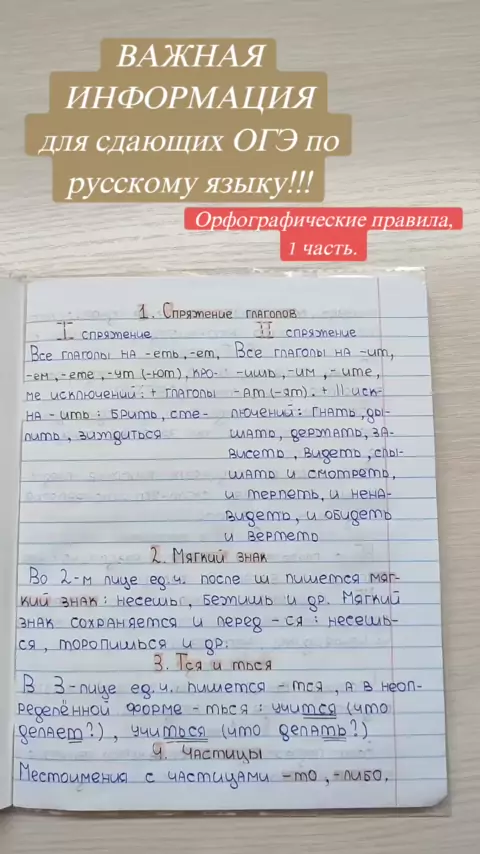 ВАЖНАЯ
ИНФОРМАЦИЯ
для сдающих ОГЭ по
русскому языку!!!
Орфографические правила,
1 часть.
1. Спряжение глаголов
I спряжение II спряжение
Все глаголы на -еть, -ет, Все глаголы на -ит,
-ем, -ете, -ут (-ют), кро- -ишь, -им, -ите,
ме исключений: + глаголы -ат (-ят). + 11 иск-
на -ить: брить, сте- лючений: гнать, ды-
лить, зиждиться шать, держать, за-
висеть, видеть, слы-
шать и смотреть,
и терпеть, и нена-
видеть, и обидеть
и вертеть
2. Мягкий знак
Во 2-м лице ед.ч. после ш пишется мяг-
кий знак: несешь, бежишь и др. Мягкий
знак сохраняется и перед -ся: несешь-
ся, торопишься и др.
3. Тся и ться
В 3-лице ед.ч. пишется -тся, а в неоп-
ределённой форме -ться: учится (что
делает?), учиться (что делать?)
4. Частицы
Местоимения с частицами -то, -либо,